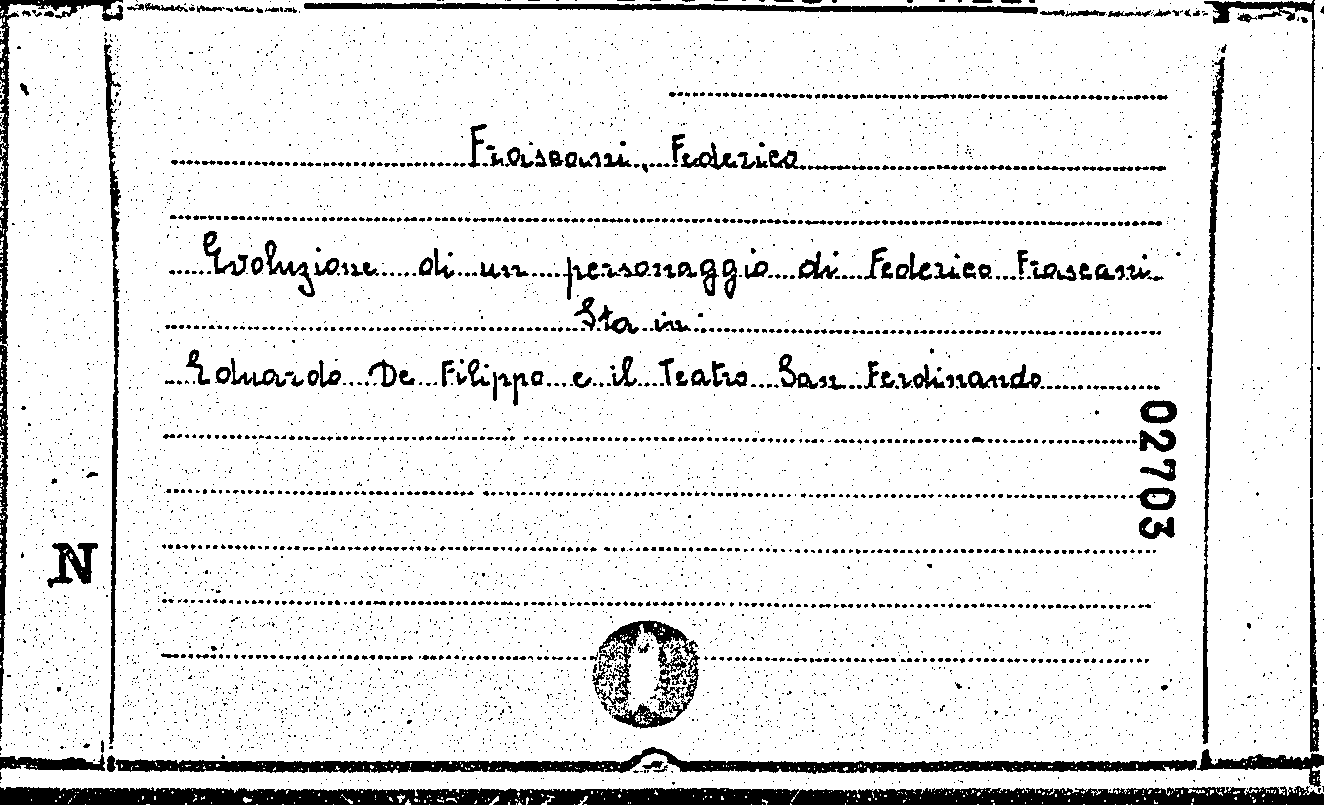 Frascani, Federico
Evoluzione di un personaggio di Federico Frascani
Sta in:
Eduardo De Filippo e il Teatro San Ferdinando
02703
N